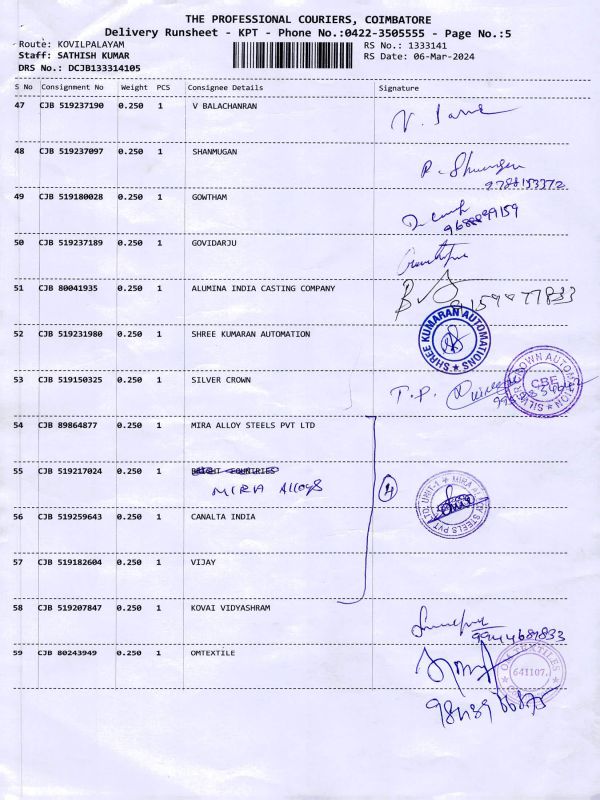 THE PROFESSIONAL COURIERS, COIMBATORE
Delivery Runsheet - KPT - Phone No.:0422-3505555 - Page No.:5
Route: KOVILPALAYAM RS No.: 1333141
Staff: SATHISH KUMAR RS Date: 06-Mar-2024
DRS No.: DCJB133314105
S No Consignment No Weight PCS Consignee Details Signature
47 CJB 519237190 0.250 1 V BALACHANRAN
48 CJB 519237097 0.250 1 SHANMUGAN
9788153372
49 CJB 519180028 0.250 1 GOWTHAM
50 CJB 519237189 0.250 1 GOVIDARJU
51 CJB 80041935 0.250 1 ALUMINA INDIA CASTING COMPANY
52 CJB 519231980 0.250 1 SHREE KUMARAN AUTOMATION
SHREE KUMARAN AUTOMATIONS
53 CJB 519150325 0.250 1 SILVER CROWN
SILVER CROWN AUTOMATION
CBE
54 CJB 89864877 0.250 1 MIRA ALLOY STEELS PVT LTD
55 CJB 519217024 0.250 1
MIRA Alloys
4
MIRA ALLOY STEELS PVT. LTD. UNIT-1
56 CJB 519259643 0.250 1 CANALTA INDIA
57 CJB 519182604 0.250 1 VIJAY
58 CJB 519207847 0.250 1 KOVAI VIDYASHRAM
59 CJB 80243949 0.250 1 OMTEXTILE
641107.